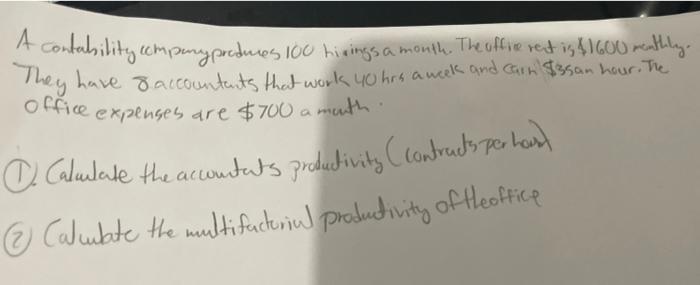 A contability company produces 100 hirings a month. The office rent is $1600 monthly.
They have 8 accountants that work 40 hrs a week and earn $35 an hour. The
office expenses are $700 a month.
① Calculate the accountats productivity (contracts per hour)
② Calculate the multifactorial productivity of the office